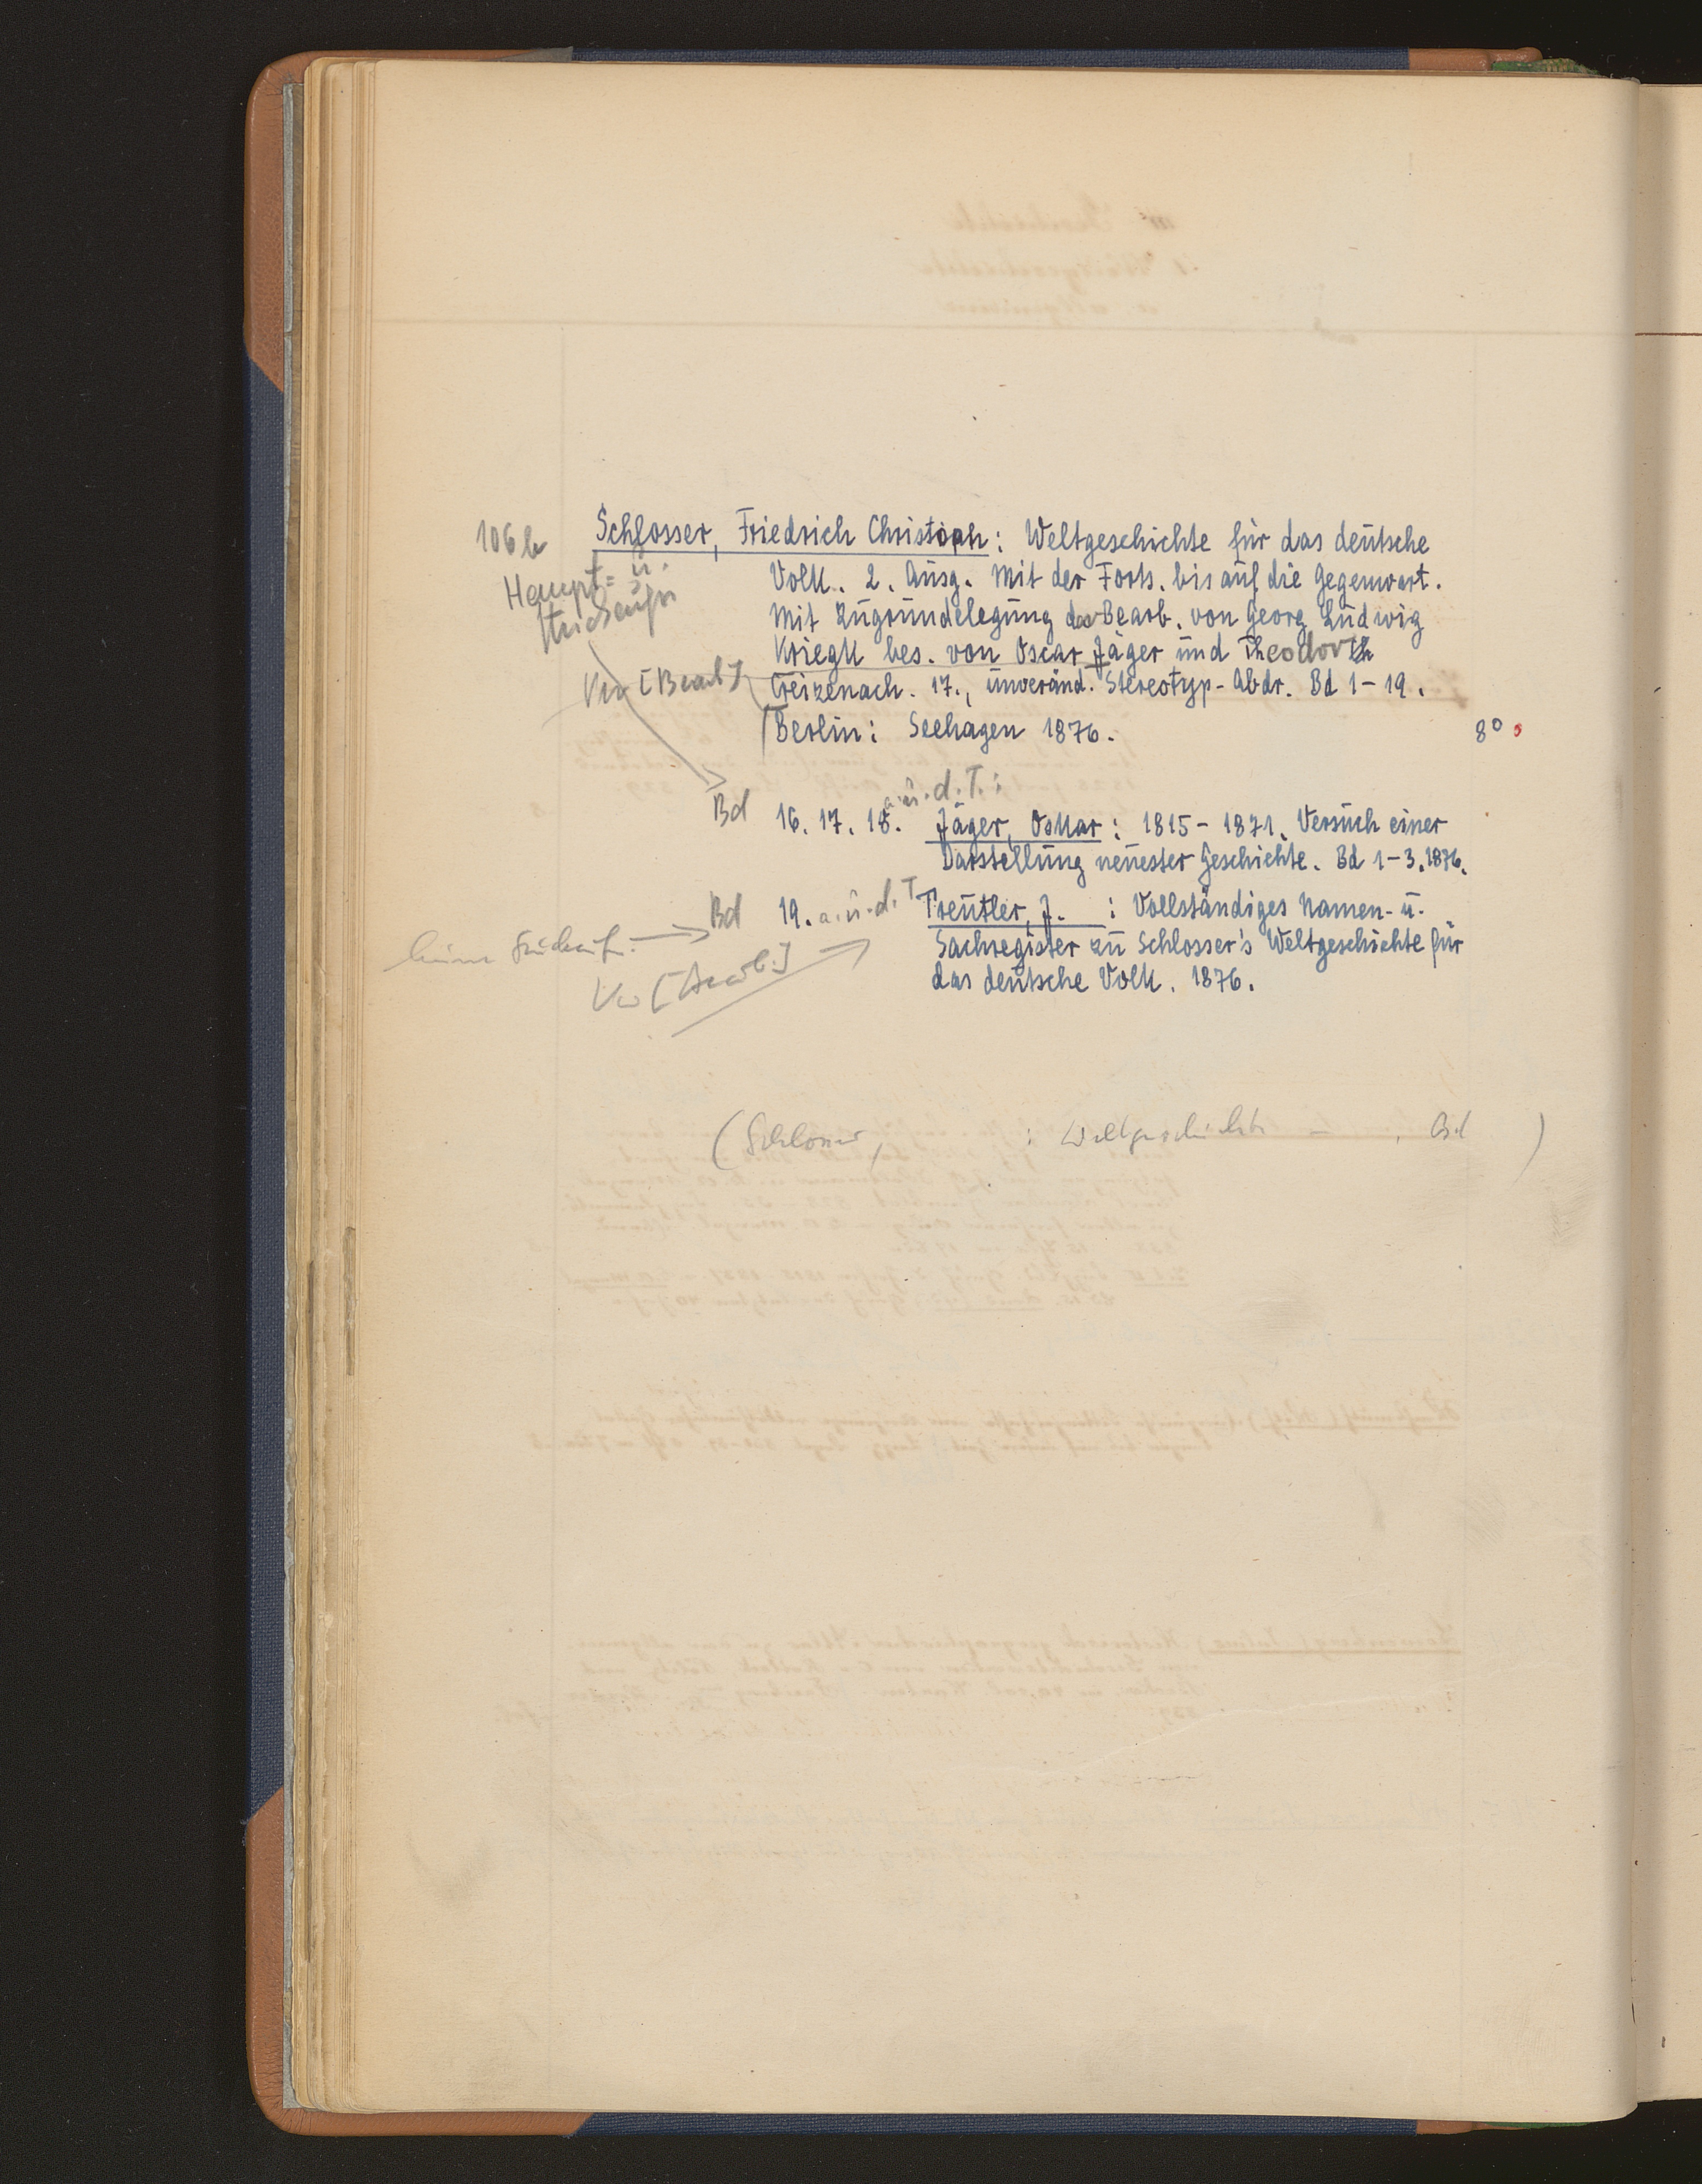 106b Schlosser, Friedrich Christoph: Weltgeschichte für das deutsche
Haupt= u.
Volk. 2. Ausg. Mit der Forts. bis auf die Gegenwart.
Mit Zugrundelegung der Bearb. von Georg Ludwig
Kriegk bes. von Oscar Jäger und Theodor
Verw [Bearb]
Creizenach. 17., unveränd. Stereotyp-Abdr. Bd 1-19.
Berlin: Seehagen 1876. 8°
a. u. d. T.:
Bd 16. 17. 18. Jäger, Oskar: 1815-1871. Versuch einer
Darstellung neuester Geschichte. Bd 1-3. 1876.
Bd 19. a. u. d. T Treutler, J. : Vollständiges Namen- u.
keine Stückaufn.
Sachregister zu Schlosser's Weltgeschichte für
das deutsche Volk. 1876.
Vw [Bearb.]
(Schlosser, : Weltgeschichte — . Bd )